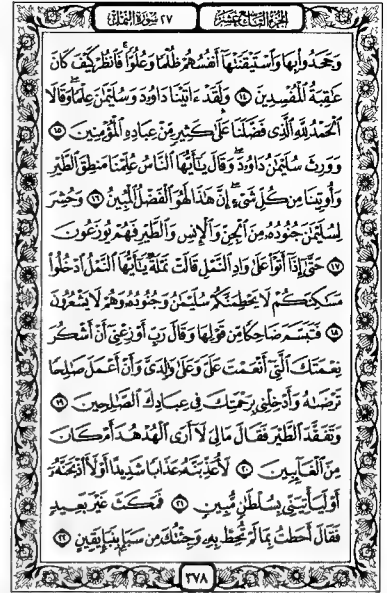 الجزء التاسع عشر
٢٧ سورة النمل
وَجَحَدُوا۟ بِهَا وَٱسْتَيْقَنَتْهَآ أَنفُسُهُمْ ظُلْمًا وَعُلُوًّا ۚ فَٱنظُرْ كَيْفَ كَانَ
عَٰقِبَةُ ٱلْمُفْسِدِينَ ١٤ وَلَقَدْ ءَاتَيْنَا دَاوُۥدَ وَسُلَيْمَٰنَ عِلْمًا ۖ وَقَالَا
ٱلْحَمْدُ لِلَّهِ ٱلَّذِى فَضَّلَنَا عَلَىٰ كَثِيرٍ مِّنْ عِبَادِهِ ٱلْمُؤْمِنِينَ ١٥
وَوَرِثَ سُلَيْمَٰنُ دَاوُۥدَ ۖ وَقَالَ يَٰٓأَيُّهَا ٱلنَّاسُ عُلِّمْنَا مَنطِقَ ٱلطَّيْرِ
وَأُوتِينَا مِن كُلِّ شَىْءٍ ۖ إِنَّ هَٰذَا لَهُوَ ٱلْفَضْلُ ٱلْمُبِينُ ١٦ وَحُشِرَ
لِسُلَيْمَٰنَ جُنُودُهُۥ مِنَ ٱلْجِنِّ وَٱلْإِنسِ وَٱلطَّيْرِ فَهُمْ يُوزَعُونَ
١٧ حَتَّىٰٓ إِذَآ أَتَوْا۟ عَلَىٰ وَادِ ٱلنَّمْلِ قَالَتْ نَمْلَةٌ يَٰٓأَيُّهَا ٱلنَّمْلُ ٱدْخُلُوا۟
مَسَٰكِنَكُمْ لَا يَحْطِمَنَّكُمْ سُلَيْمَٰنُ وَجُنُودُهُۥ وَهُمْ لَا يَشْعُرُونَ
١٨ فَتَبَسَّمَ ضَاحِكًا مِّن قَوْلِهَا وَقَالَ رَبِّ أَوْزِعْنِىٓ أَنْ أَشْكُرَ
نِعْمَتَكَ ٱلَّتِىٓ أَنْعَمْتَ عَلَىَّ وَعَلَىٰ وَٰلِدَىَّ وَأَنْ أَعْمَلَ صَٰلِحًا
تَرْضَىٰهُ وَأَدْخِلْنِى بِرَحْمَتِكَ فِى عِبَادِكَ ٱلصَّٰلِحِينَ ١٩
وَتَفَقَّدَ ٱلطَّيْرَ فَقَالَ مَا لِىَ لَآ أَرَى ٱلْهُدْهُدَ أَمْ كَانَ
مِنَ ٱلْغَآئِبِينَ ٢٠ لَأُعَذِّبَنَّهُۥ عَذَابًا شَدِيدًا أَوْ لَأَا۟ذْبَحَنَّهُۥٓ
أَوْ لَيَأْتِيَنِّى بِسُلْطَٰنٍ مُّبِينٍ ٢١ فَمَكَثَ غَيْرَ بَعِيدٍ
فَقَالَ أَحَطتُ بِمَا لَمْ تُحِطْ بِهِۦ وَجِئْتُكَ مِن سَبَإٍۭ بِنَبَإٍ يَقِينٍ ٢٢
٣٧٨